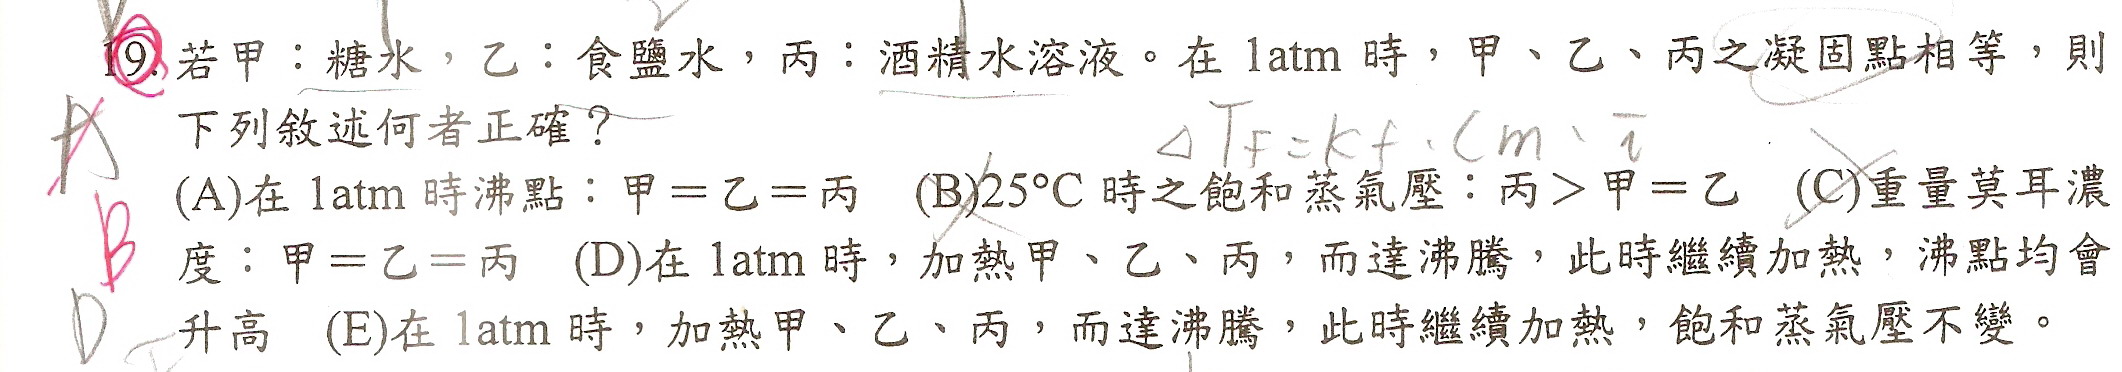 19. 若甲：糖水，乙：食鹽水，丙：酒精水溶液。在 1atm 時，甲、乙、丙之凝固點相等，則
下列敘述何者正確？
△TF=Kf·Cm·i
(A)在 1atm 時沸點：甲＝乙＝丙 (B)25°C 時之飽和蒸氣壓：丙＞甲＝乙 (C)重量莫耳濃
度：甲＝乙＝丙 (D)在 1atm 時，加熱甲、乙、丙，而達沸騰，此時繼續加熱，沸點均會
升高 (E)在 1atm 時，加熱甲、乙、丙，而達沸騰，此時繼續加熱，飽和蒸氣壓不變。
A
B
D